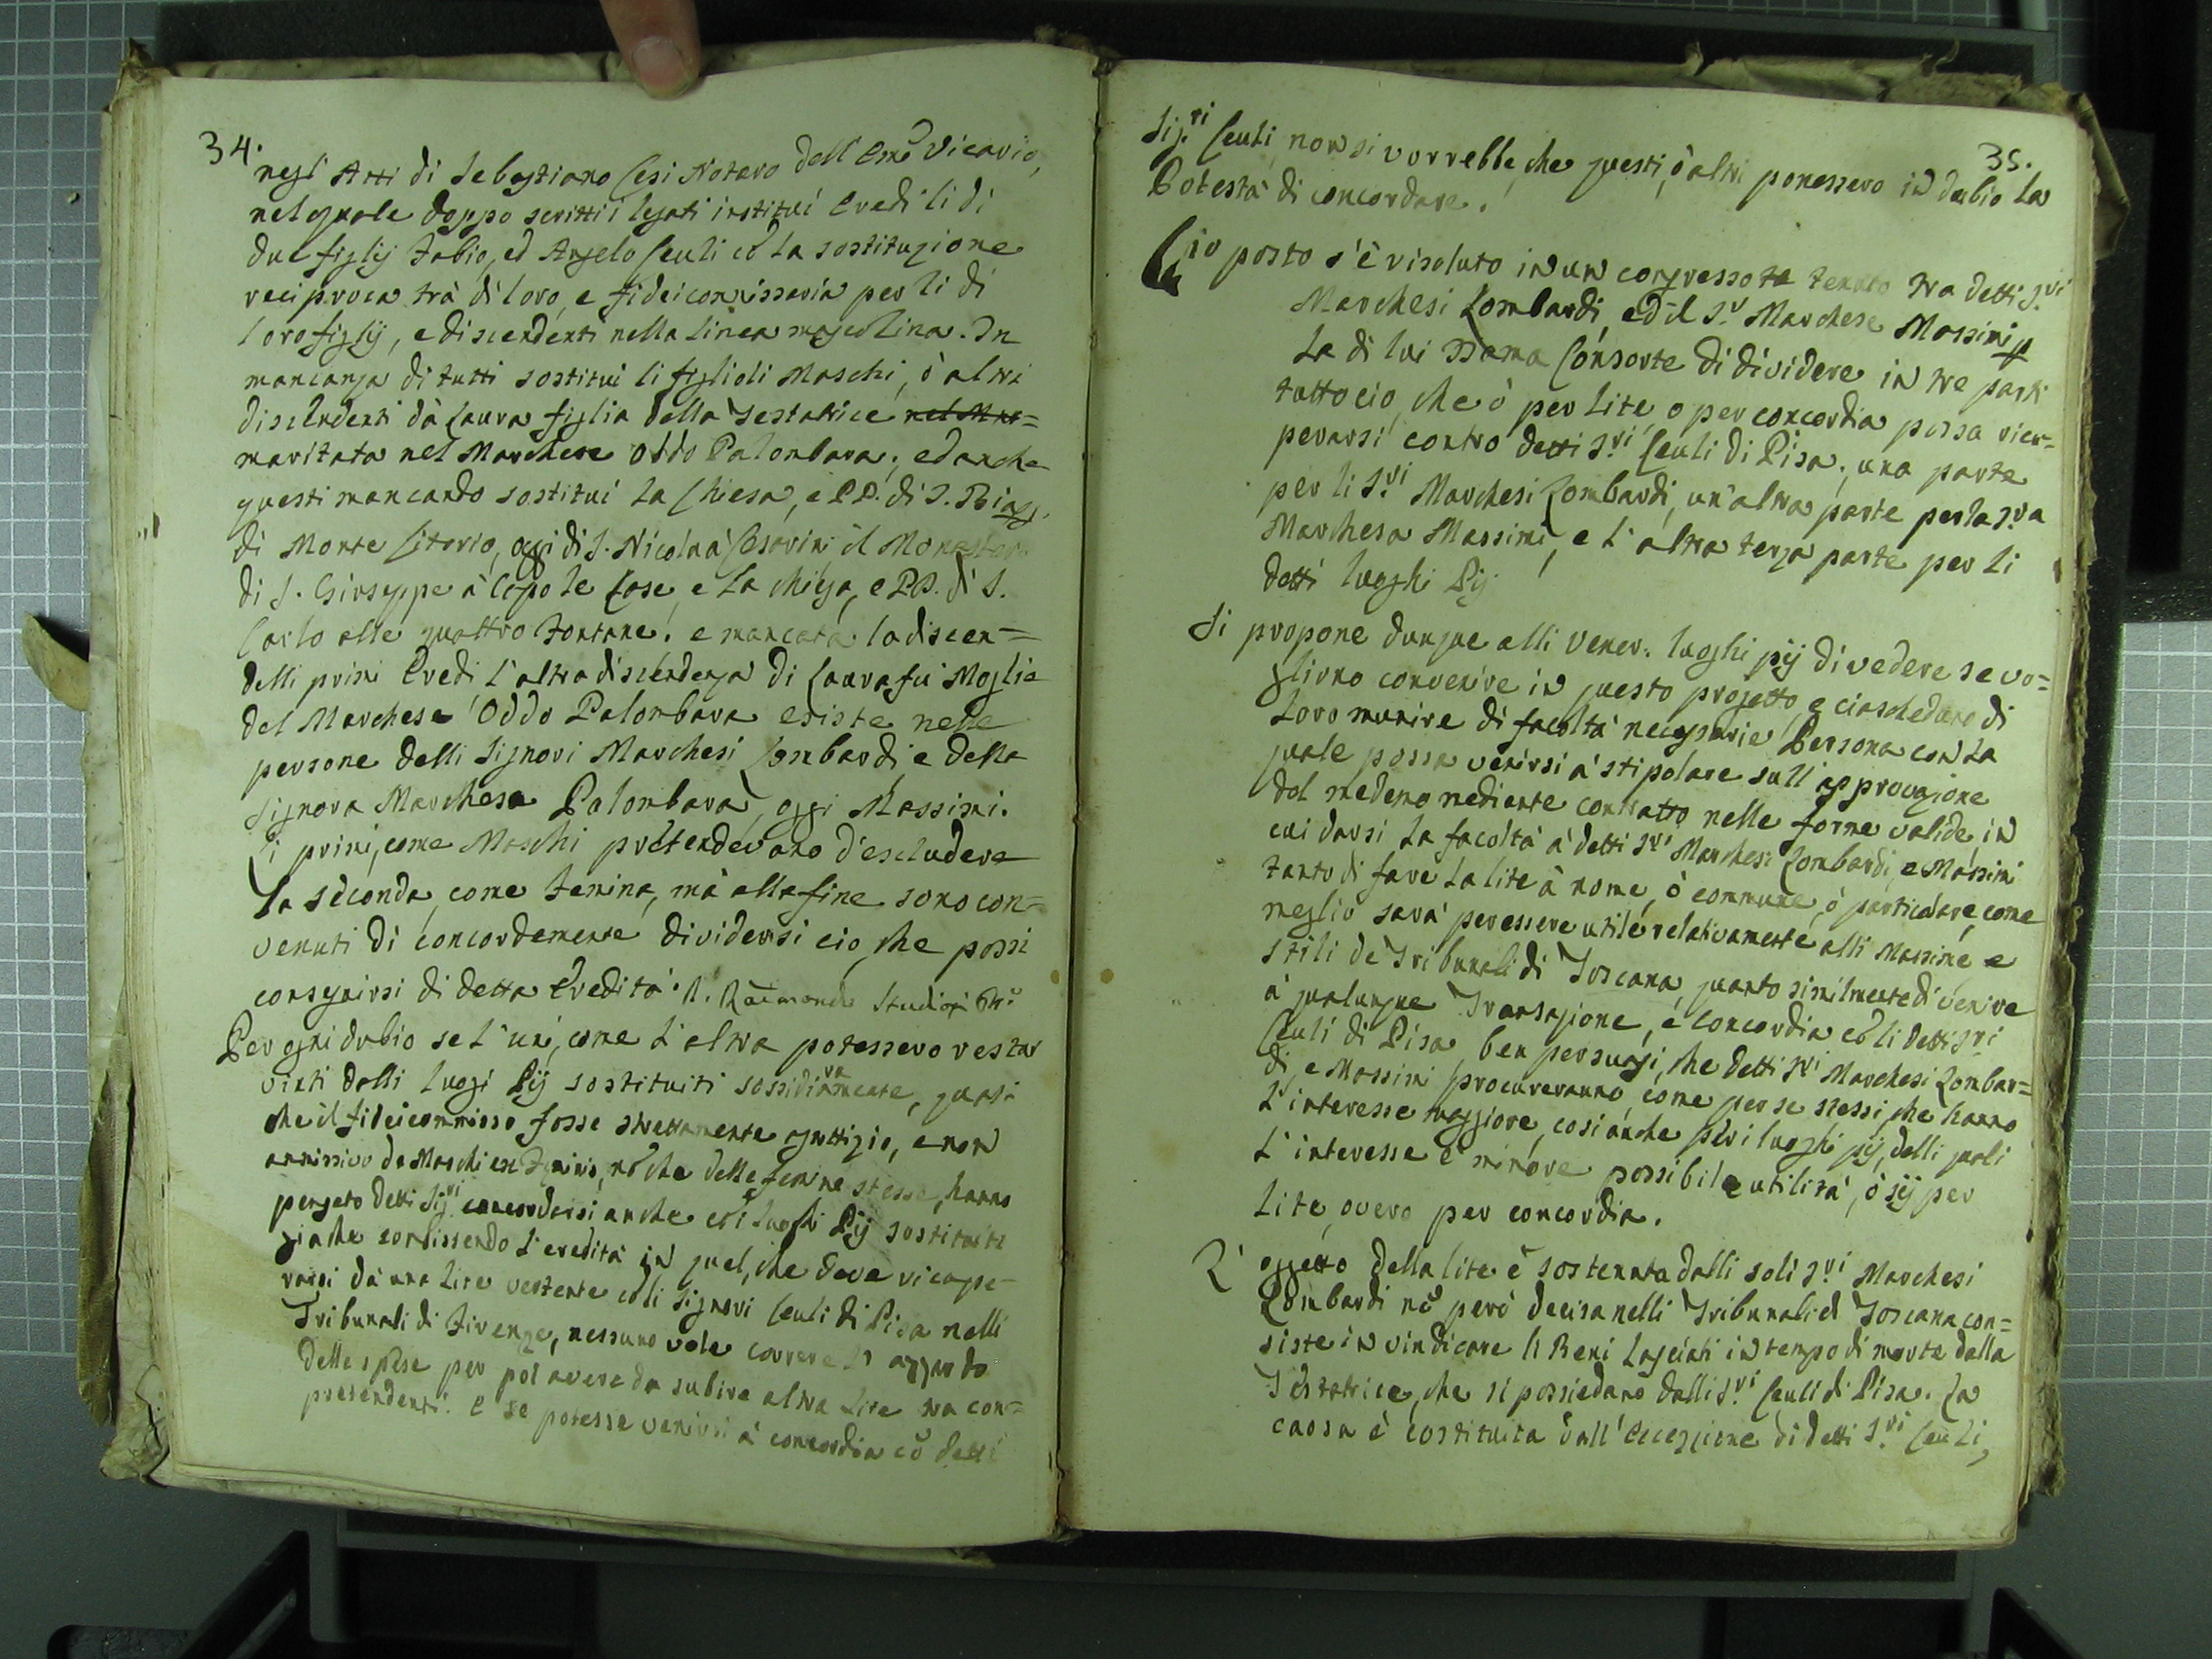 34.
negl' Atti di Sebastiano Cesi Notaro dell' Emo Vicario,
nel quale doppo scritti i legati instituí Eredi li di
due figlij Fabio, ed Angelo Ceuli cõ la sostituzione
reciproca trà di loro, e fideicommissaria per li di
loro figlij, e discendenti nella linea mascolina. In
mancanza di tutti sostituí li figlioli Maschi, ò altri
discendenti dà Laura figlia della Testatrice nel Mar=
maritata nel Marchese Oddo Palombara; ed anche
questi mancando sostituí la Chiesa, e PP. di S. Biag.
di Monte Citorio, oggi di S. Nicola à Cesarini il Monaster.
di S. Giuseppe à Capo le Case, e la chiesa, e PP. di S.
Carlo alle quattro Fontane. e mancata la discen=
delli primi Eredi l'altra discendenza di Laura fù Moglie
del Marchese Oddo Palombara esiste nelle
persone delli Signori Marchesi Lombardi, e della
Signora Marchesa Palombara, oggi Massimi.
Li primi, come Maschi pretendevano d'escludere
la seconda, come femina, mà alla fine sono con=
venuti di concordemente dividersi ciò, che possi
conseguirsi di detta Eredità. R. Raimondi
Per ogni dubio se l'uni, come l'altra potessero restar
vinti dalli luogi Pij sostituiti sossidiariamente, quasi
che il fideicommisso fosse strettamente agnatizio, e non
ammissivo de Maschi ex feminis, nõ che delle femine stesse, hanno
pensato detti Sigri concordarsi anche cõ i luoghi Pij sostituiti
giache consistendo l'eredità in quel, che deve ricupe=
rarsi dà una lite vertente cõ li Signori Ceuli di Pisa nelli
Tribunali di Firenze, nessuno vole correre l'azzardo
delle spese per poi avere da subire altra lite tra con=
pretendenti. E se potesse venirsi à concordia cõ detti
35.
Sig.ri Ceuli, non si vorrebbe, che questi, ò altri ponessero in dubio la
Potestà di concordare.
Ciò posto s'è risoluto in un congresso tenuto tra detti S.ri
Marchesi Lombardi, ed il S.r Marchese Massimi p
la di lui Dama Consorte di dividere in tre parti
tutto ciò, che ò per lite, o per concordia possa ricu=
perarsi contro detti S.ri Ceuli di Pisa; una parte
per li S.ri Marchesi Lombardi, un'altra parte per la S.ra
Marchesa Massimi, e l'altra terza parte per li
detti luoghi Pij
Si propone dunque alli Vener. luoghi pij di vedere se vo=
gliono convenire in questo progetto, e ciascheduno di
loro munire di facoltà necessarie Persona con la
quale possa venirsi à stipolare sull'approvazione
del medemo mediante contratto nelle forme valide, in
cui darsi la facoltà à detti S.ri Marchesi Lombardi, e Massimi
tanto di fare la lite à nome, ò commune, ò particolare, come
meglio sarà per essere utile relativamente alli Massime e
stili de Tribunali di Toscana, quanto similmente di venire
à qualunque Transazione, è concordia cõ li detti S.ri
Ceuli di Pisa, ben persuasi, che detti S.ri Marchesi Lombar=
di, e Massimi procureranno come per se stessi, che hanno
l'interesse maggiore, così anche per i luoghi pij, delli quali
l'interesse è minore possibile utilità, ò sij per
lite, overo per concordia.
L'oggetto della lite è sostenuta dalli soli S.ri Marchesi
Lombardi nõ però decisa nelli Tribunali di Toscana con=
siste in vindicare li Beni lasciati in tempo di morte dalla
Testatrice, che si possiedano dalli S.ri Ceuli di Pisa. La
causa è costituita dall' Eccezzione di detti S.ri Ceuli,